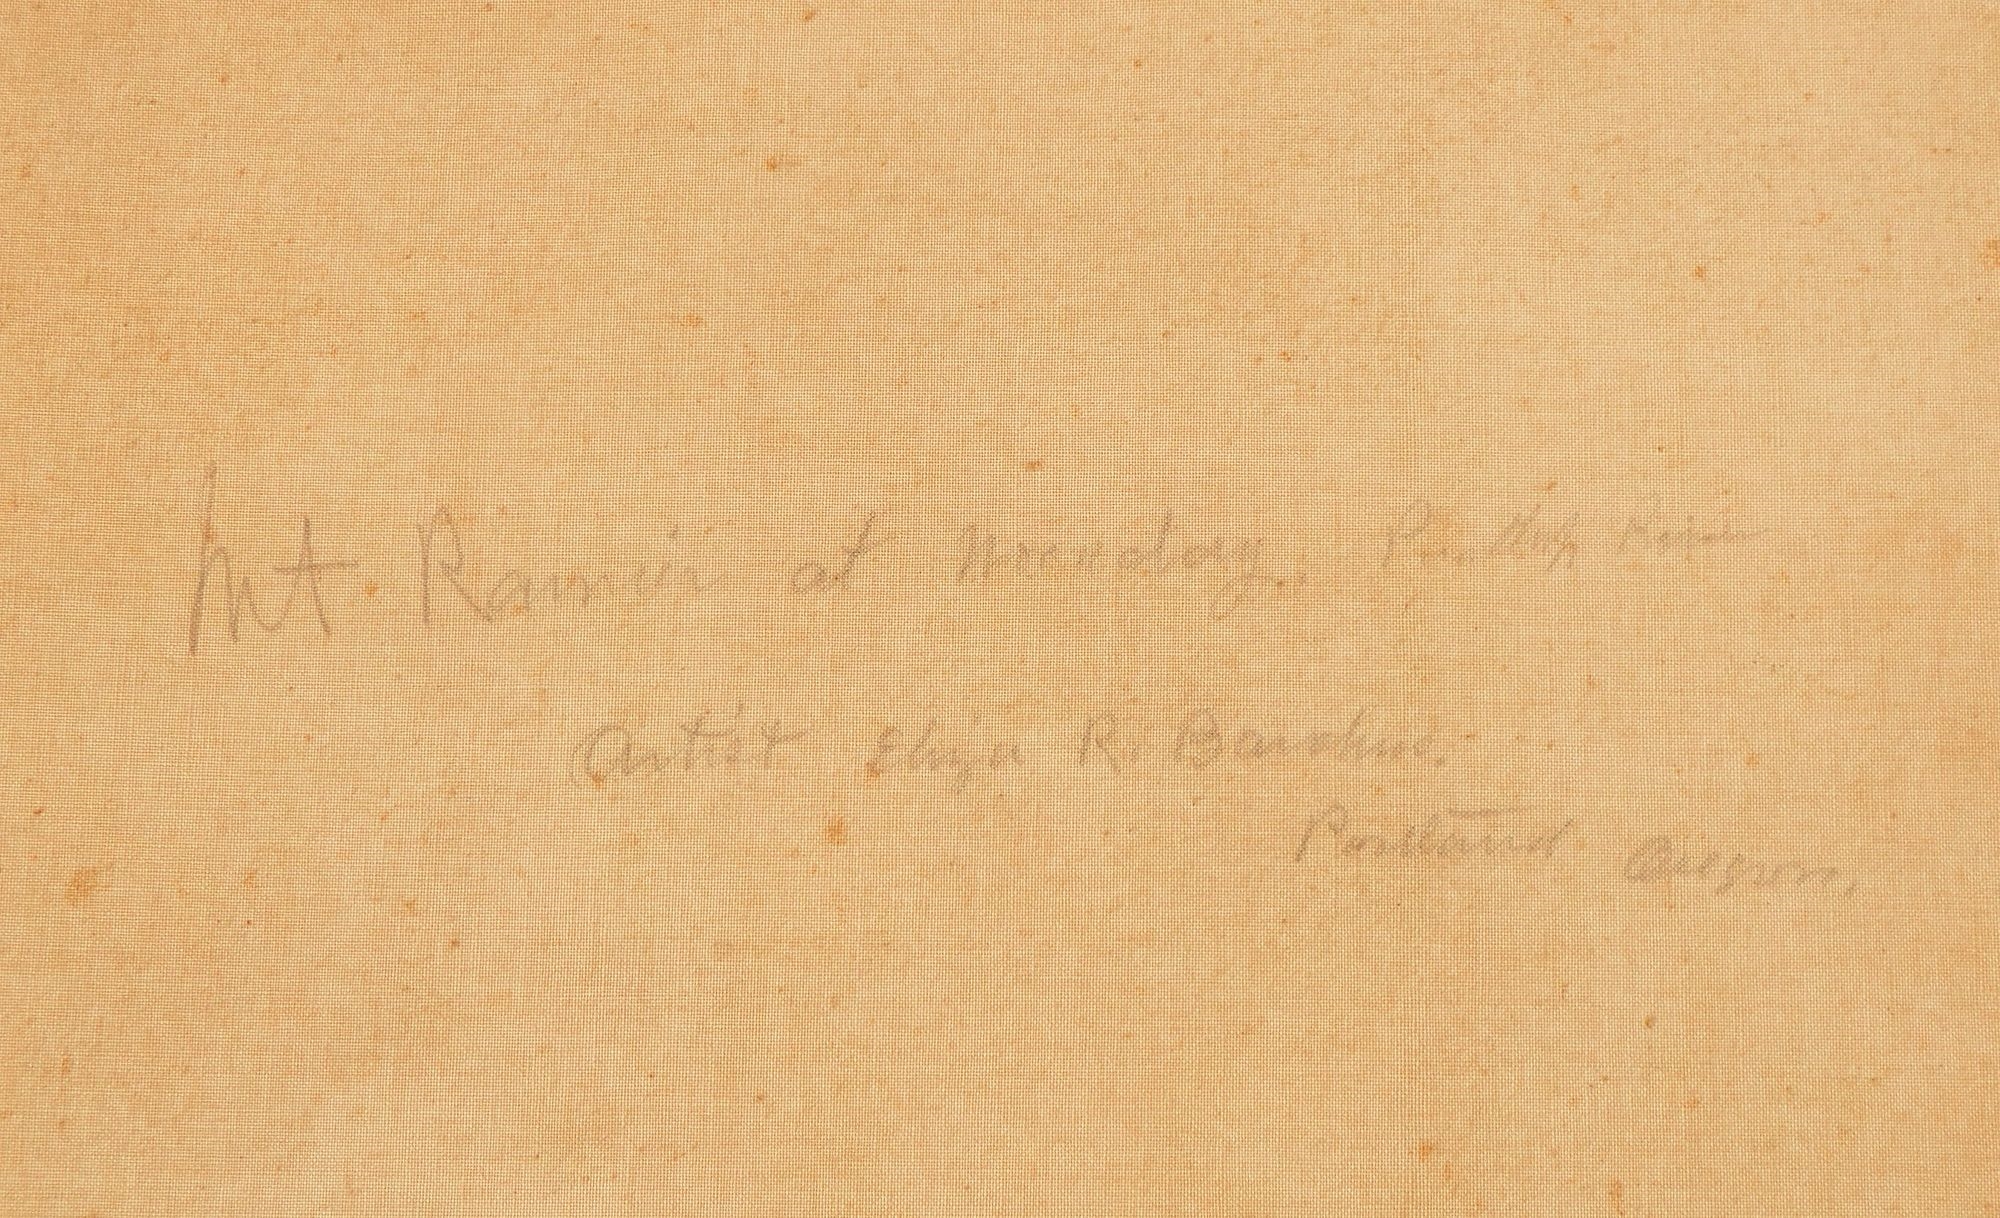 Mt. Rainier at noonday.
Artist Eliza R. Barchus.
Portland Oregon.